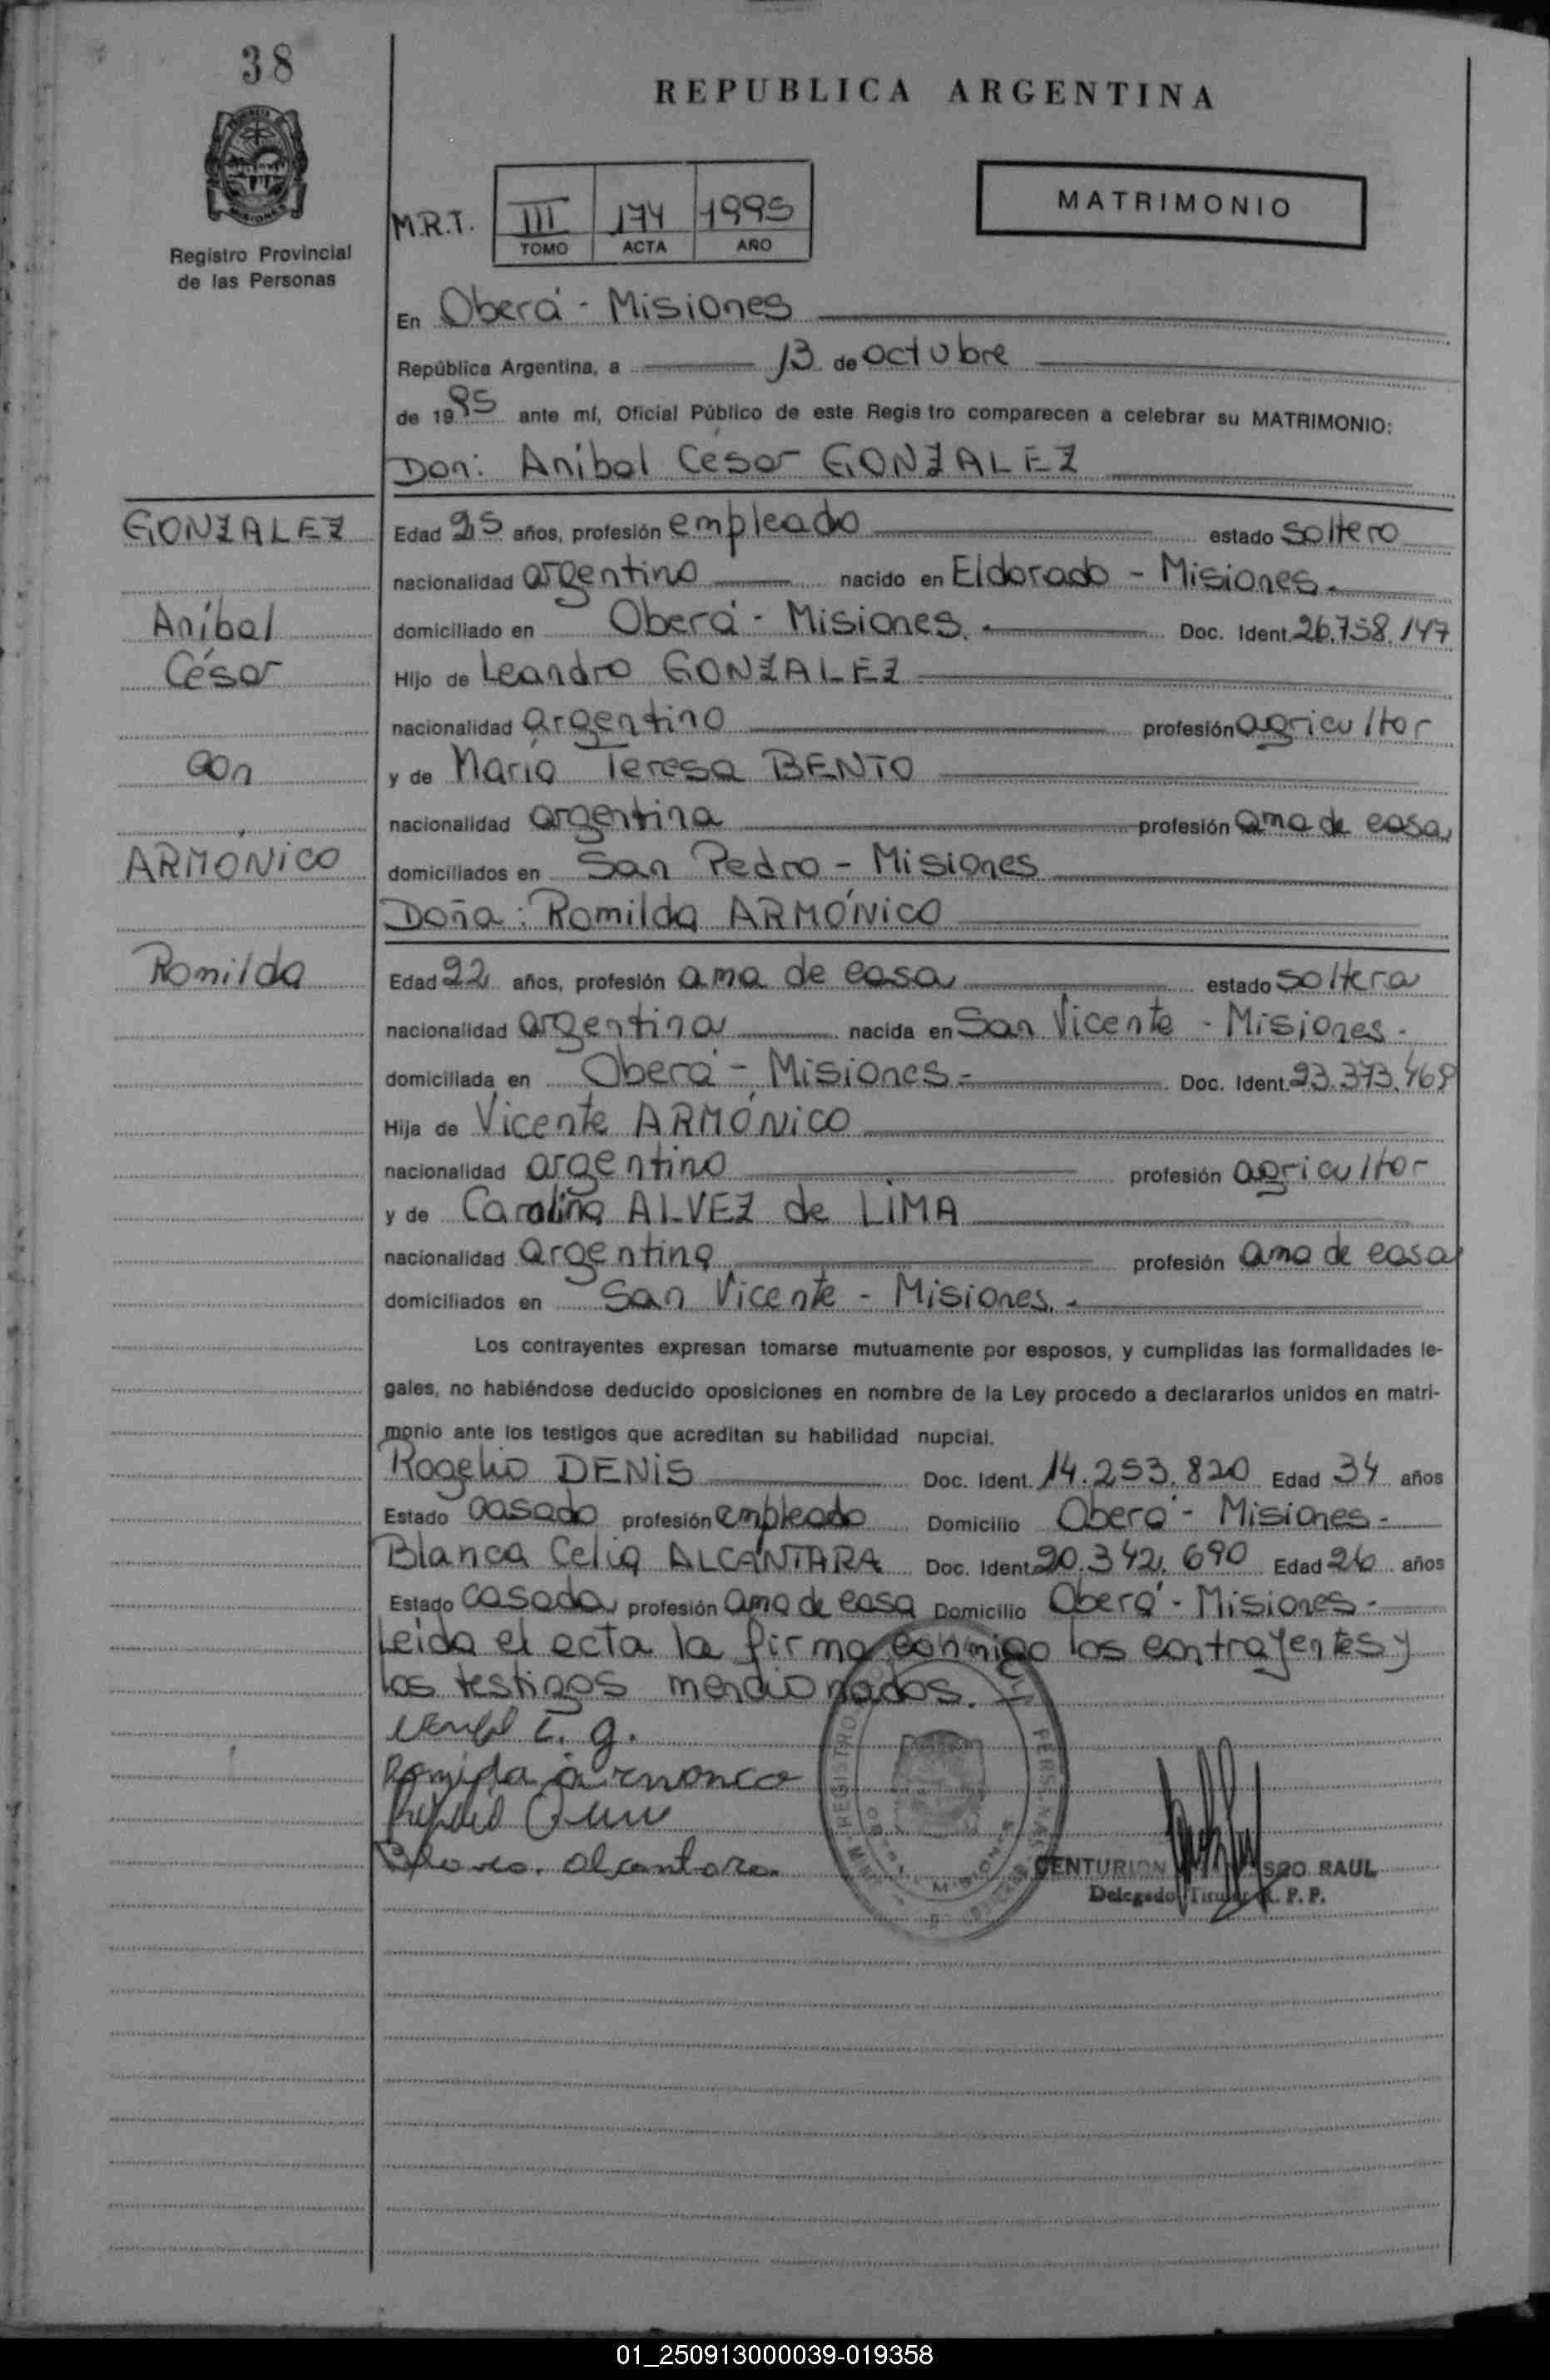 38
REPUBLICA ARGENTINA
MATRIMONIO
Registro Provincial
de las Personas
M.R.T. III 174 1995
TOMO ACTA AÑO
En Oberá - Misiones
República Argentina, a 13 de octubre
de 1995 ante mí, Oficial Público de este Regis tro comparecen a celebrar su MATRIMONIO:
Don: Aníbal César GONZALEZ
GONZALEZ
Aníbal
César
con
ARMÓNICO
Romilda
Edad 25 años, profesión empleado estado soltero
nacionalidad argentino nacido en Eldorado - Misiones.
domiciliado en Oberá - Misiones. Doc. Ident. 26.758.147
Hijo de Leandro GONZALEZ
nacionalidad argentino profesión agricultor
y de María Teresa BENTO
nacionalidad argentina profesión ama de casa
domiciliados en San Pedro - Misiones
Doña: Romilda ARMÓNICO
Edad 22 años, profesión ama de casa estado soltera
nacionalidad argentina nacida en San Vicente - Misiones.
domiciliada en Oberá - Misiones. Doc. Ident. 23.373.468
Hija de Vicente ARMÓNICO
nacionalidad argentino profesión agricultor
y de Carolina ALVEZ de LIMA
nacionalidad argentina profesión ama de casa
domiciliados en San Vicente - Misiones.
Los contrayentes expresan tomarse mutuamente por esposos, y cumplidas las formalidades le-
gales, no habiéndose deducido oposiciones en nombre de la Ley procedo a declararlos unidos en matri-
monio ante los testigos que acreditan su habilidad nupcial.
Rogelio DENIS Doc. Ident. 14.253.820 Edad 34 años
Estado casado profesión empleado Domicilio Oberá - Misiones -
Blanca Celia ALCANTARA Doc. Ident. 20.342.690 Edad 26 años
Estado casada profesión ama de casa Domicilio Oberá - Misiones -
Leida el acta la firma conmigo los contrayentes y
los testigos mencionados.
Romida armonco
Blanca. alcantara
CENTURION SCO RAUL
Delegado Titular R. P. P.
01_250913000039-019358